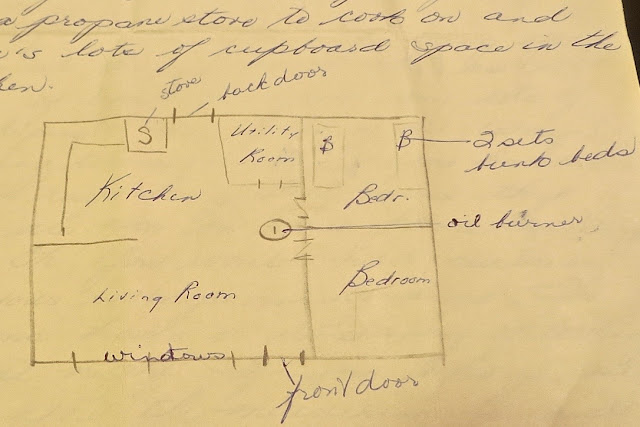 a propane stove to cook on and
lots of cupboard space in the
stove
back door
S
Utility
Room
B
B
2 sets
bunk beds
Kitchen
Bedr.
oil burner
Living Room
Bedroom
windows
front door